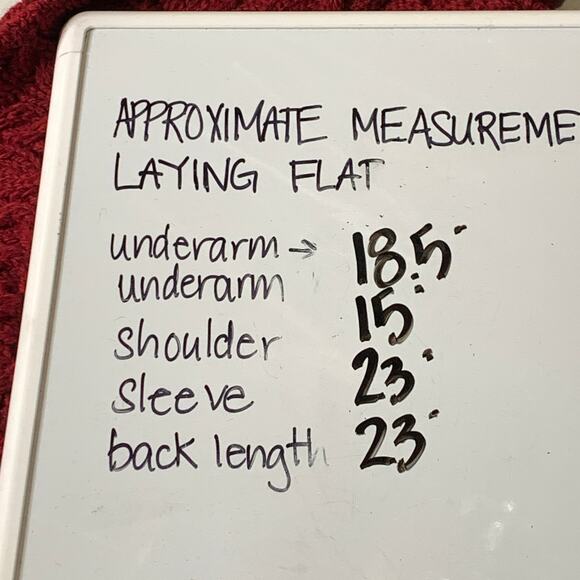 APPROXIMATE MEASUREME
LAYING FLAT
underarm → 18.5"
underarm
shoulder 15"
sleeve 23"
back length 23"